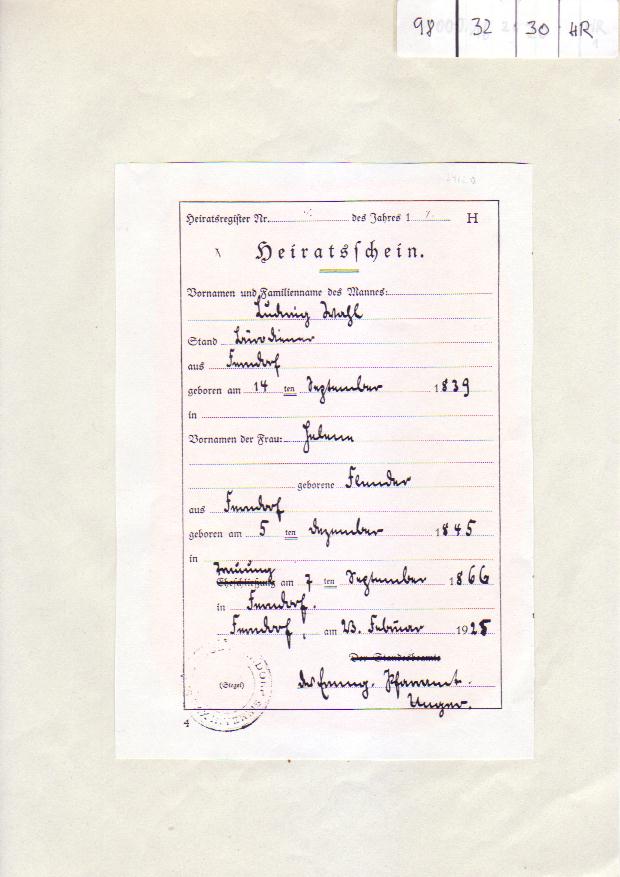 98 32 30 HR
Heiratsregister Nr. des Jahres 1 H
Heiratsschein.
Vornamen und Familienname des Mannes:
Ludwig Wahl
Stand Bürodiener
aus Ferndorf
geboren am 14 ten September 1839
in
Vornamen der Frau: Helene
geborene Flender
aus Ferndorf
geboren am 5 ten Dezember 1845
in
Trauung
Eheschließung am 7 ten September 1866
in Ferndorf.
Ferndorf, am 23. Februar 1925
Der Standesbeamte
(Siegel) das Evang. Pfarramt.
Unger.
4